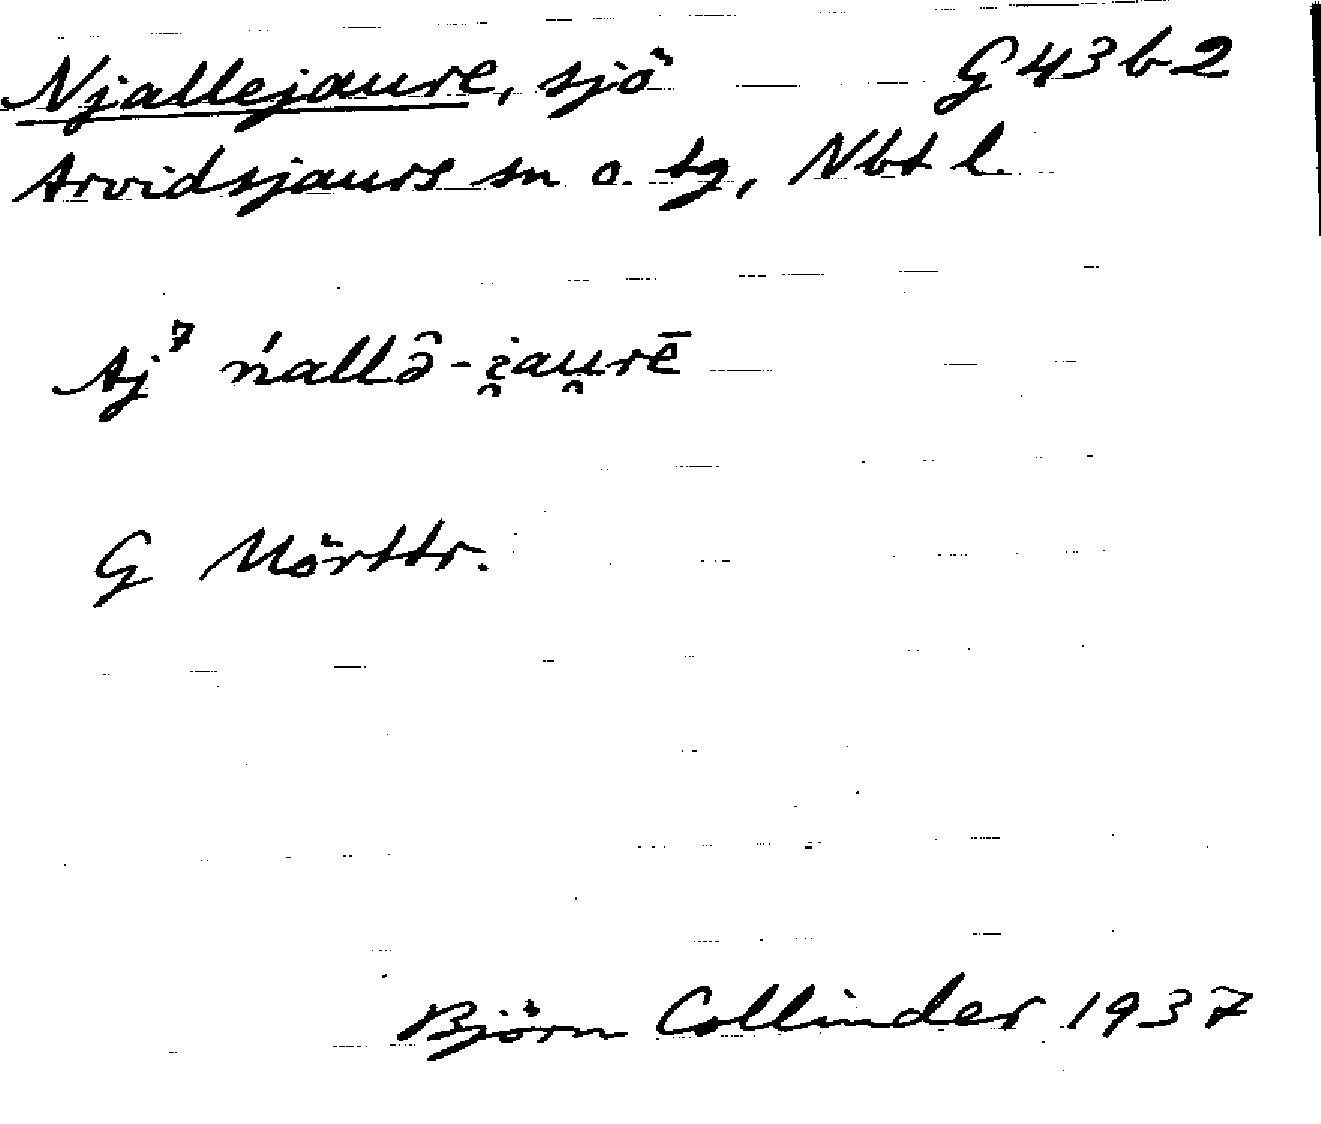 Njallejaure, sjö G 43 b 2
Arvidsjaurs sn o. tg, Nbt l.
Aj⁷ ńallə̑-i̯au̯rē
G Mörttr.
Björn Collinder 1937